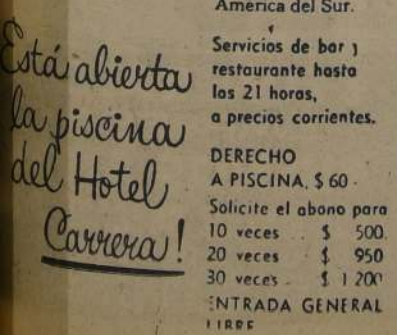 Está abierta
la piscina
del Hotel
Carrera!
America del Sur.
Servicios de bar y
restaurante hasta
las 21 horas,
a precios corrientes.
DERECHO
A PISCINA, $ 60.
Solicite el abono para
10 veces .. $ 500.
20 veces $ 950
30 veces . $ 1 200
ENTRADA GENERAL
LIBRE